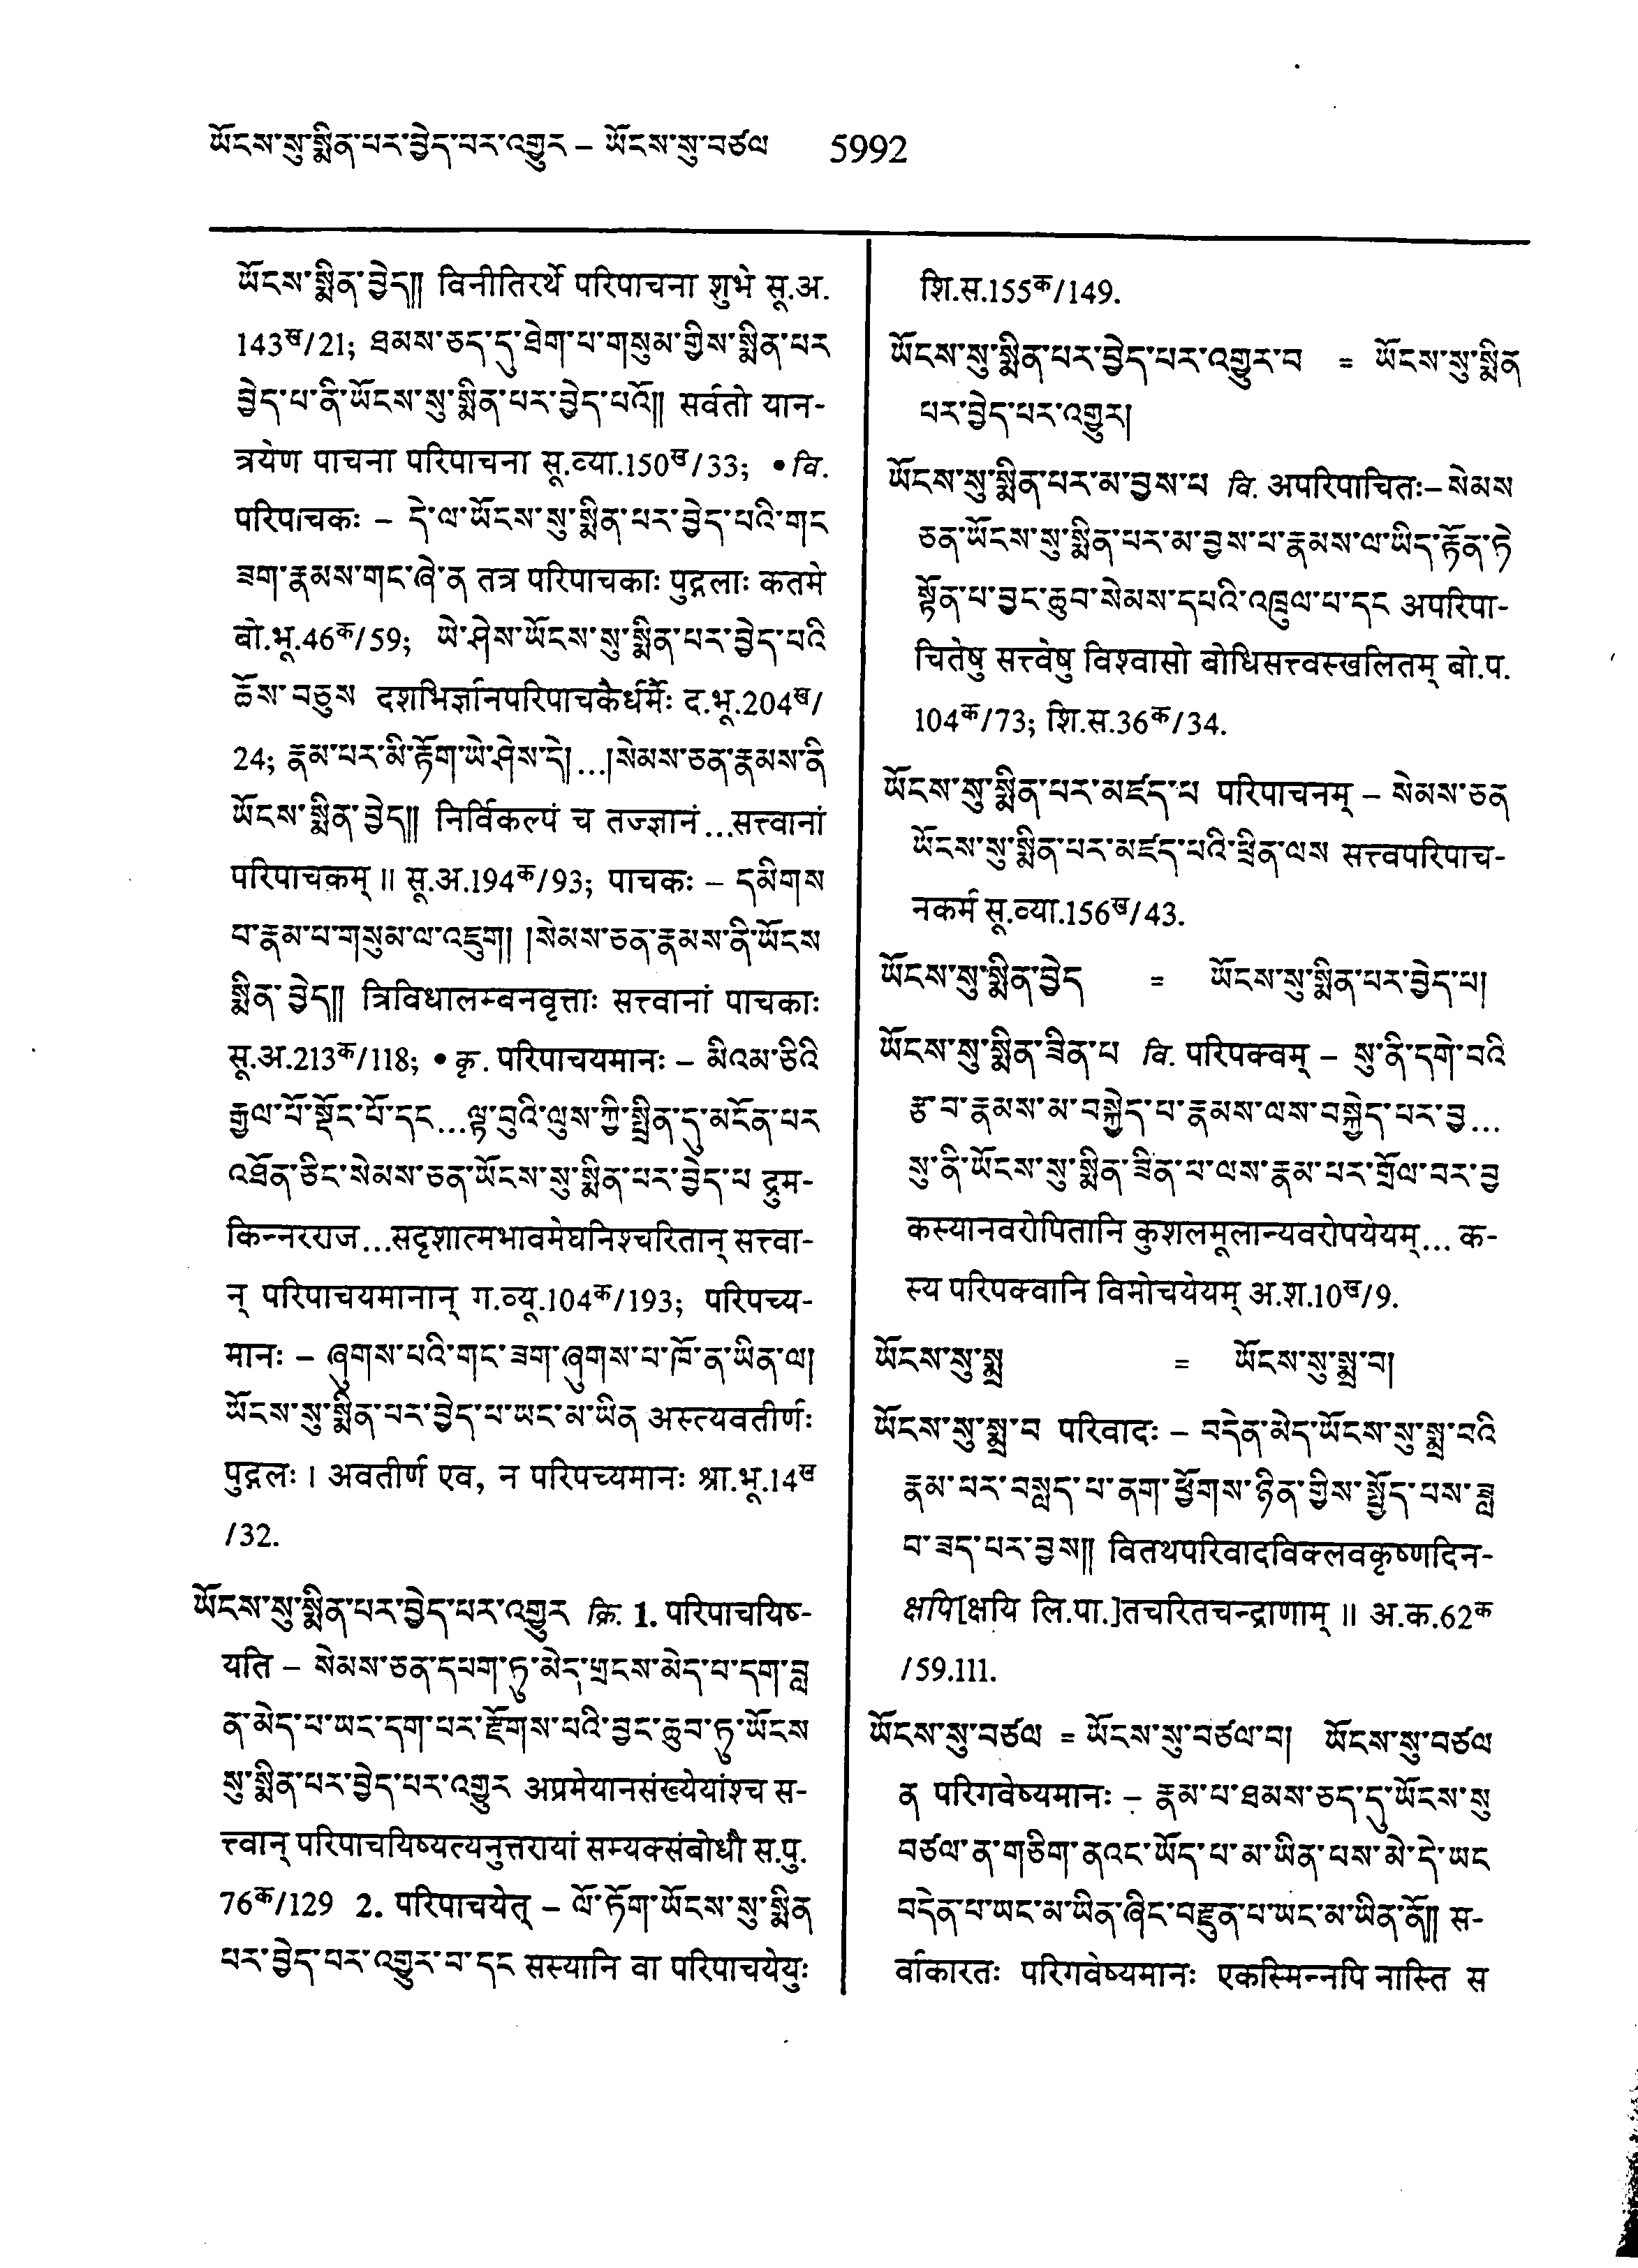 ཡོངས་སུ་སྨིན་པར་བྱེད་པར་འགྱུར – ཡོངས་སུ་བཙལ 5992
ཡོངས་སྨིན་བྱེད།། विनीतिरर्थे परिपाचना शुभे सू.अ.
143ख/21; ཐམས་ཅད་དུ་ཐེག་པ་གསུམ་གྱིས་སྨིན་པར
བྱེད་པ་ནི་ཡོངས་སུ་སྨིན་པར་བྱེད་པའོ།། सर्वतो यान-
त्रयेण पाचना परिपाचना सू.व्या.150ख/33; • वि.
परिपाचकः – དེ་ལ་ཡོངས་སུ་སྨིན་པར་བྱེད་པའི་གང
ཟག་རྣམས་གང་ཞེ་ན तत्र परिपाचकाः पुद्गलाः कतमे
बो.भू.46क/59; ཡེ་ཤེས་ཡོངས་སུ་སྨིན་པར་བྱེད་པའི
ཆོས་བཅུས दशभिर्ज्ञानपरिपाचकैर्धर्मैः द.भू.204ख/
24; རྣམ་པར་མི་རྟོག་ཡེ་ཤེས་དེ།...།སེམས་ཅན་རྣམས་ནི
ཡོངས་སྨིན་བྱེད།། निर्विकल्पं च तज्ज्ञानं...सत्त्वानां
परिपाचकम् ॥ सू.अ.194क/93; पाचकः – དམིགས
པ་རྣམ་པ་གསུམ་ལ་འཇུག། །སེམས་ཅན་རྣམས་ནི་ཡོངས
སྨིན་བྱེད།། त्रिविधालम्बनवृत्ताः सत्त्वानां पाचकाः
सू.अ.213क/118; • कृ. परिपाचयमानः – མིའམ་ཅིའི
རྒྱལ་པོ་སྡོང་པོ་དང...ལྟ་བུའི་ལུས་ཀྱི་སྤྲིན་དུ་མངོན་པར
འཐོན་ཅིང་སེམས་ཅན་ཡོངས་སུ་སྨིན་པར་བྱེད་པ द्रुम-
किन्नरराज...सदृशात्मभावमेघनिश्चरितान् सत्त्वा-
न् परिपाचयमानान् ग.व्यू.104क/193; परिपच्य-
मानः – ཞུགས་པའི་གང་ཟག་ཞུགས་པ་ཁོ་ན་ཡིན་ལ།
ཡོངས་སུ་སྨིན་པར་བྱེད་པ་ཡང་མ་ཡིན अस्त्यवतीर्णः
पुद्गलः । अवतीर्ण एव, न परिपच्यमानः श्रा.भू.14ख
/32.
ཡོངས་སུ་སྨིན་པར་བྱེད་པར་འགྱུར क्रि. 1. परिपाचयिष्-
यति – སེམས་ཅན་དཔག་ཏུ་མེད་གྲངས་མེད་པ་དག་བླ
ན་མེད་པ་ཡང་དག་པར་རྫོགས་པའི་བྱང་ཆུབ་ཏུ་ཡོངས
སུ་སྨིན་པར་བྱེད་པར་འགྱུར अप्रमेयानसंख्येयांश्च स-
त्त्वान् परिपाचयिष्यत्यनुत्तरायां सम्यक्संबोधौ स.पु.
76क/129 2. परिपाचयेत् – ལོ་ཏོག་ཡོངས་སུ་སྨིན
པར་བྱེད་པར་འགྱུར་བ་དང सस्यानि वा परिपाचयेयुः
शि.स.155क/149.
ཡོངས་སུ་སྨིན་པར་བྱེད་པར་འགྱུར་བ = ཡོངས་སུ་སྨིན
པར་བྱེད་པར་འགྱུར།
ཡོངས་སུ་སྨིན་པར་མ་བྱས་པ वि. अपरिपाचितः– སེམས
ཅན་ཡོངས་སུ་སྨིན་པར་མ་བྱས་པ་རྣམས་ལ་ཡིད་རྟོན་ཏེ
སྟོན་པ་བྱང་ཆུབ་སེམས་དཔའི་འཁྲུལ་པ་དང अपरिपा-
चितेषु सत्त्वेषु विश्वासो बोधिसत्त्वस्खलितम् बो.प.
104क/73; शि.स.36क/34.
ཡོངས་སུ་སྨིན་པར་མཛད་པ परिपाचनम् – སེམས་ཅན
ཡོངས་སུ་སྨིན་པར་མཛད་པའི་ཕྲིན་ལས सत्त्वपरिपाच-
नकर्म सू.व्या.156ख/43.
ཡོངས་སུ་སྨིན་བྱེད = ཡོངས་སུ་སྨིན་པར་བྱེད་པ།
ཡོངས་སུ་སྨིན་ཟིན་པ वि. परिपक्वम् – སུ་ནི་དགེ་བའི
རྩ་བ་རྣམས་མ་བསྐྱེད་པ་རྣམས་ལས་བསྐྱེད་པར་བྱ...
སུ་ནི་ཡོངས་སུ་སྨིན་ཟིན་པ་ལས་རྣམ་པར་གྲོལ་བར་བྱ
कस्यानवरोपितानि कुशलमूलान्यवरोपयेयम्... क-
स्य परिपक्वानि विमोचयेयम् अ.श.10ख/9.
ཡོངས་སུ་སྨྲ = ཡོངས་སུ་སྨྲ་བ།
ཡོངས་སུ་སྨྲ་བ परिवादः – བདེན་མེད་ཡོངས་སུ་སྨྲ་བའི
རྣམ་པར་བསླད་པ་ནག་ཕྱོགས་ཉིན་གྱིས་སྤྱོད་པས་ཟླ
བ་ཟད་པར་བྱས།། वितथपरिवादविक्लवकृष्णदिन-
क्षपि[क्षयि लि.पा.]तचरितचन्द्राणाम् ॥ अ.क.62क
/59.111.
ཡོངས་སུ་བཙལ = ཡོངས་སུ་བཙལ་བ། ཡོངས་སུ་བཙལ
ན परिगवेष्यमानः – རྣམ་པ་ཐམས་ཅད་དུ་ཡོངས་སུ
བཙལ་ན་གཅིག་ནའང་ཡོད་པ་མ་ཡིན་པས་མེ་དེ་ཡང
བདེན་པ་ཡང་མ་ཡིན་ཞིང་བརྫུན་པ་ཡང་མ་ཡིན་ནོ།། स-
र्वाकारतः परिगवेष्यमानः एकस्मिन्नपि नास्ति स